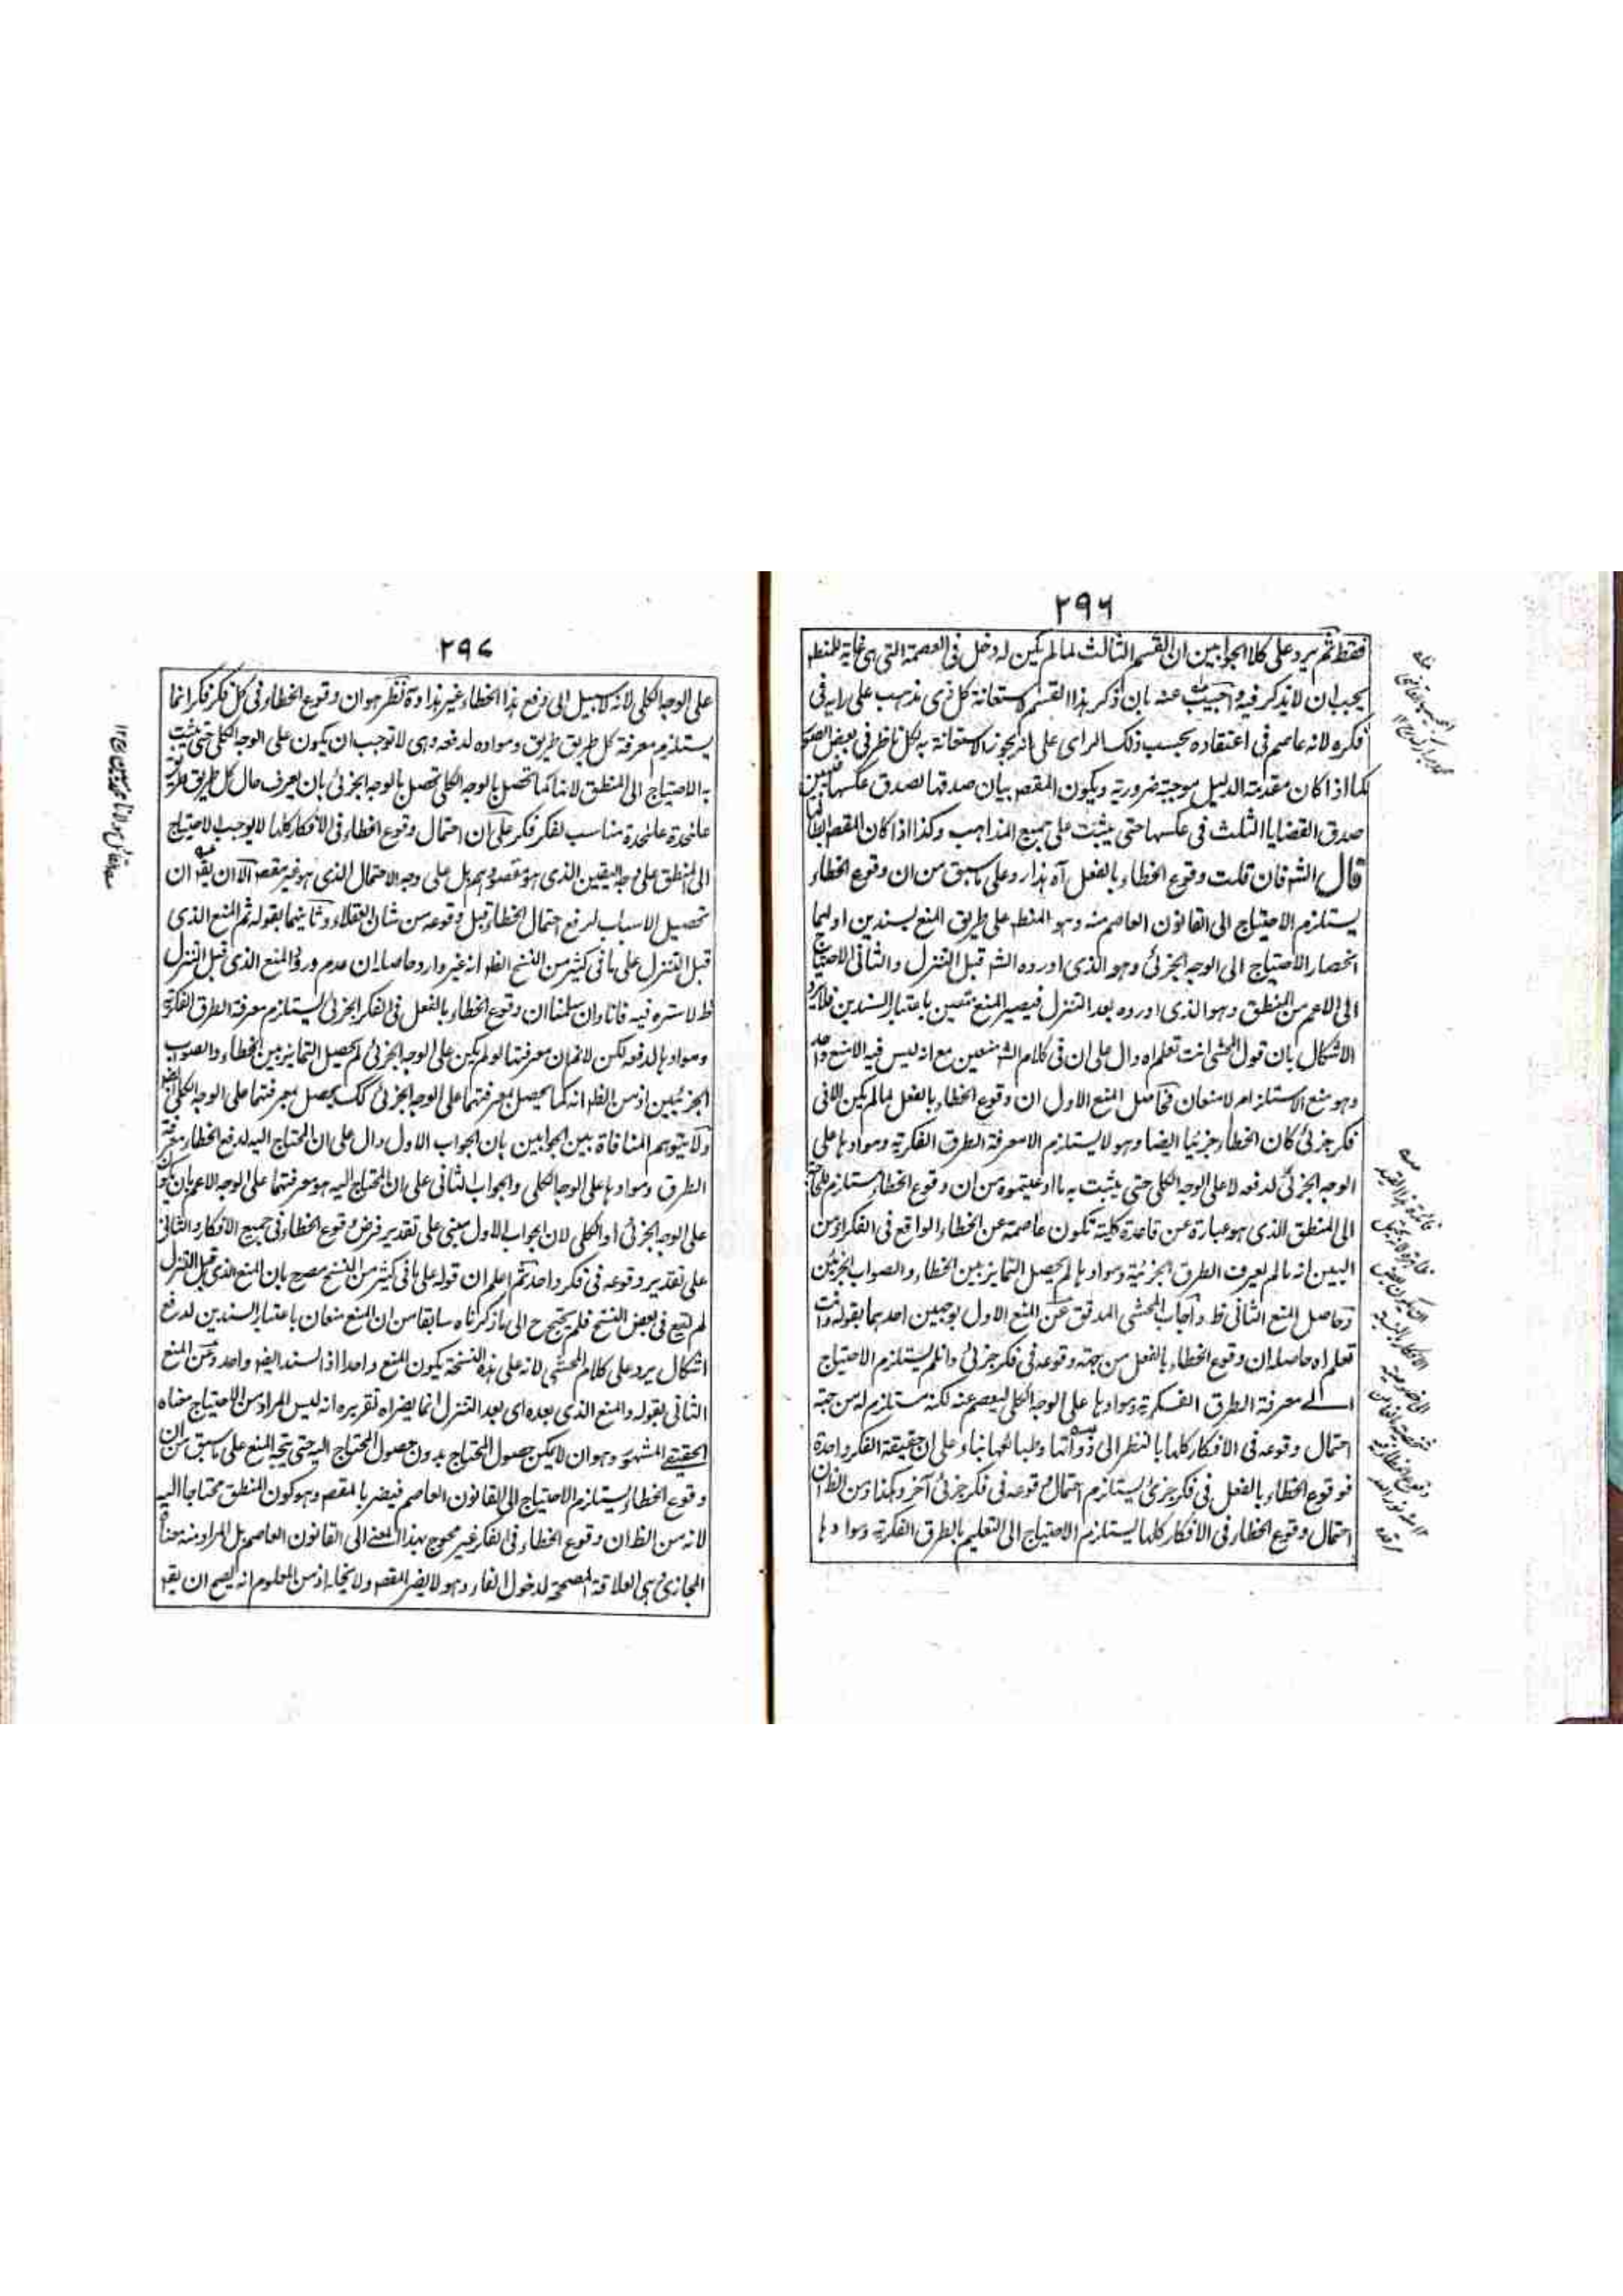 ٢٩٦
فقط ثم يرد على كلا الجوابين ان القسم الثالث لما لم يكن له دخل فى العصمة التى هى غاية للمنطه
يجب ان لا يذكر فيه واجيب عنه بان ذكر هذا القسم لاستعانة كل ذى مذهب على رايه فى
فكره لانه عاصم فى اعتقاده بحسب ذلك الراى على انه يجوز الاستعانة به لكل ناظر فى بعض الصور
كما اذا كان مقدمة الدليل موجبة ضرورية ويكون المقصه بيان صدقها لصدق عكسها فيبين
صدق القضايا الثلث فى عكسها حتى يثبت على جميع المذاهب وكذا اذا كان المقصه ابطالها
قال الشه فان قلت وقوع الخطاء بالفعل آه هذا رد على ما سبق من ان وقوع الخطاء
يستلزم الاحتياج الى القانون العاصم منه وهو المنطه على طريق المنع بسندين اولهما
انحصار الاحتياج الى الوجه الجزئى وهو الذى اورده الشه قبل التنزل والثانى الاحتياج
الى الاعم من المنطق وهو الذى اورده بعد التنزل فيصير المنع منعين باعتبار السندين فلا يرد
الاشكال بان قول المحشى انت تعلم اه دال على ان فى كلام الشه منعين مع انه ليس فيه الا منع واحد
وهو منع الاستلزام لا منعان فحاصل المنع الاول ان وقوع الخطاء بالفعل لما لم يكن الا فى
فكر جزئى كان الخطاء جزئيا ايضا وهو لا يستلزم الا معرفة الطرق الفكرية وموادها على
الوجه الجزئى لدفعه لا على الوجه الكلى حتى يثبت به ما ادعيتموه من ان وقوع الخطاء مستلزم للاحتياج
الى المنطق الذى هو عبارة عن قاعدة كلية تكون عاصمة عن الخطاء الواقع فى الفكر اذ من
البين انه ما لم يعرف الطرق الجزئية وموادها لم يحصل التمايز بين الخطاء والصواب الجزئين
وحاصل المنع الثانى ظه واجاب المحشى المدقق عن المنع الاول بوجهين احدهما بقوله وانت
تعلم اه حاصله ان وقوع الخطاء بالفعل من جهة وقوعه فى فكر جزئى وان لم يستلزم الاحتياج
الى معرفة الطرق الفكرية وموادها على الوجه الكلى ليعصم عنه لكنه مستلزم له من جهة
احتمال وقوعه فى الافكار كلها بالنظر الى ذواتها وطبائعها بناء على ان حقيقة الفكر واحدة
فوقوع الخطاء بالفعل فى فكر جزئى يستلزم احتمال وقوعه فى فكر جزئى آخر وهكذا ومن الظه ان
احتمال وقوع الخطاء فى الافكار كلها يستلزم الاحتياج الى التعليم بالطرق الفكرية وموادها
٢٩٧
على الوجه الكلى لانه لا سبيل الى دفع هذا الخطاء غير هذا وفيه نظر هو ان وقوع الخطاء فى كل فكر فكر انما
يستلزم معرفة كل طريق طريق ومواده لدفعه وهى لا توجب ان يكون على الوجه الكلى حتى يثبت
به الاحتياج الى المنطق لانها كما تحصل بالوجه الكلى تحصل بالوجه الجزئى بان يعرف حال كل طريق طريق
علٰحدة علٰحدة مناسب لفكر فكر على ان احتمال وقوع الخطاء فى الافكار كلها لا يوجب الاحتياج
الى المنطق على وجه اليقين الذى هو مقصودهم بل على وجه الاحتمال الذى هو غير مقصه الا ان يقه ان
تحصيل الاسباب لدفع احتمال الخطاء قبل وقوعه من شان العقلاء وثانيهما بقوله ثم المنع الذى
قبل التنزل على ما فى كثير من النسخ الظه انه غير وارد حاصله ان عدم ورود المنع الذى قبل التنزل
ظه لا ستره فيه فانا وان سلمنا ان وقوع الخطاء بالفعل فى الفكر الجزئى يستلزم معرفة الطرق الفكرية
وموادها لدفعه لكن لا نم ان معرفتها لو لم يكن على الوجه الجزئى لم يحصل التمايز بين الخطاء والصواب
الجزئيين اذ من الظه انه كما يحصل بمعرفتهما على الوجه الجزئى كك يحصل بمعرفتهما على الوجه الكلى ايضه
ولا يتوهم المنافاة بين الجوابين بان الجواب الاول دال على ان المحتاج اليه لدفع الخطاء معرفة
الطرق وموادها على الوجه الكلى والجواب الثانى على ان المحتاج اليه هو معرفتهما على الوجه الاعم بان يكون
على الوجه الجزئى او الكلى لان الجواب الاول مبنى على تقدير فرض وقوع الخطاء فى جميع الافكار والثانى
على تقدير وقوعه فى فكر واحد ثم اعلم ان قوله على ما فى كثير من النسخ مصرح بان المنع الذى قبل التنزل
لم يقع فى بعض النسخ فلم يحتج ح الى ما ذكرناه سابقا من ان المنع منعان باعتبار السندين لدفع
اشكال يرد على كلام المحشى لانه على هذه النسخة يكون المنع واحدا اذ السند ايضه واحد وعن المنع
الثانى بقوله والمنع الذى بعده اى بعد التنزل انما يضر اه تقريره انه ليس المراد من الاحتياج معناه
الحقيقى المشهور وهو ان لا يكن حصول المحتاج بدون حصول المحتاج اليه حتى يتجه المنع على ما سبق من ان
وقوع الخطاء يستلزم الاحتياج الى القانون العاصم فيضر بالمقصه وهو كون المنطق محتاجا اليه
لانه من الظه ان وقوع الخطاء فى الفكر غير محوج بهذا المعنى الى القانون العاصم بل المراد منه معناه
المجازى وهى العلاقة المصححة لدخول الفاء وهو لا يضر المقصه ولا يخل به اذ من المعلوم انه يصح ان يقه